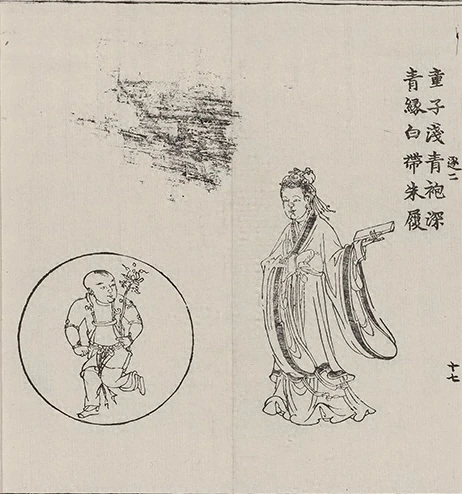 童子淺青袍深
青緣白帶朱履
逐二
十七